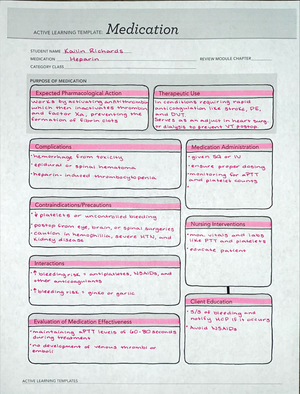 ACTIVE LEARNING TEMPLATE: Medication
STUDENT NAME Kailin Richards
MEDICATION Heparin
REVIEW MODULE CHAPTER
CATEGORY CLASS
PURPOSE OF MEDICATION
Expected Pharmacological Action
Works by activating antithrombin
which then inactivates thrombin
and factor Xa, preventing the
formation of fibrin clots
Therapeutic Use
In conditions requiring rapid
anticoagulation like stroke, PE,
and DVT.
Serves as an adjunct in heart surg
or dialysis to prevent VT postop
Complications
•hemorrhage from toxicity
•epidural or spinal hematoma
•heparin-induced thrombocytopenia
Medication Administration
•given SQ or IV
•ensure proper dosing
•monitoring for aPTT
and platelet counts
Contraindications/Precautions
•↓platelets or uncontrolled bleeding
•postop from eye, brain, or spinal surgeries
•caution in hemophilia, severe HTN, and
kidney disease
Nursing Interventions
•mon. vitals and labs
like PTT and platelets
•educate patient
Interactions
•↑bleeding risk = antiplatelets, NSAIDs, and
other anticoagulants
•↑bleeding risk = ginko or garlic
Client Education
•S/S of bleeding and
notify HCP if it occurs
•Avoid NSAIDs
Evaluation of Medication Effectiveness
•maintaining aPTT levels of 60-80 seconds
during treatment
•no development of venous thrombi or
emboli
ACTIVE LEARNING TEMPLATES